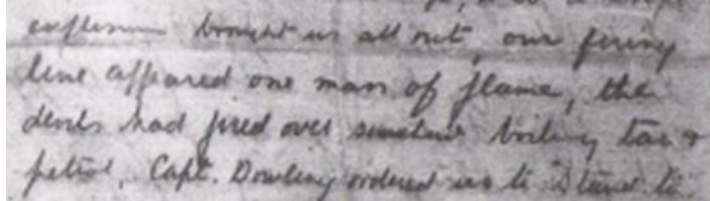 brought us all out, our firing
line appeared one mass of flame, the
devils had fired over boiling tar &
petrol, Capt. Dowling ordered us to "Stand to